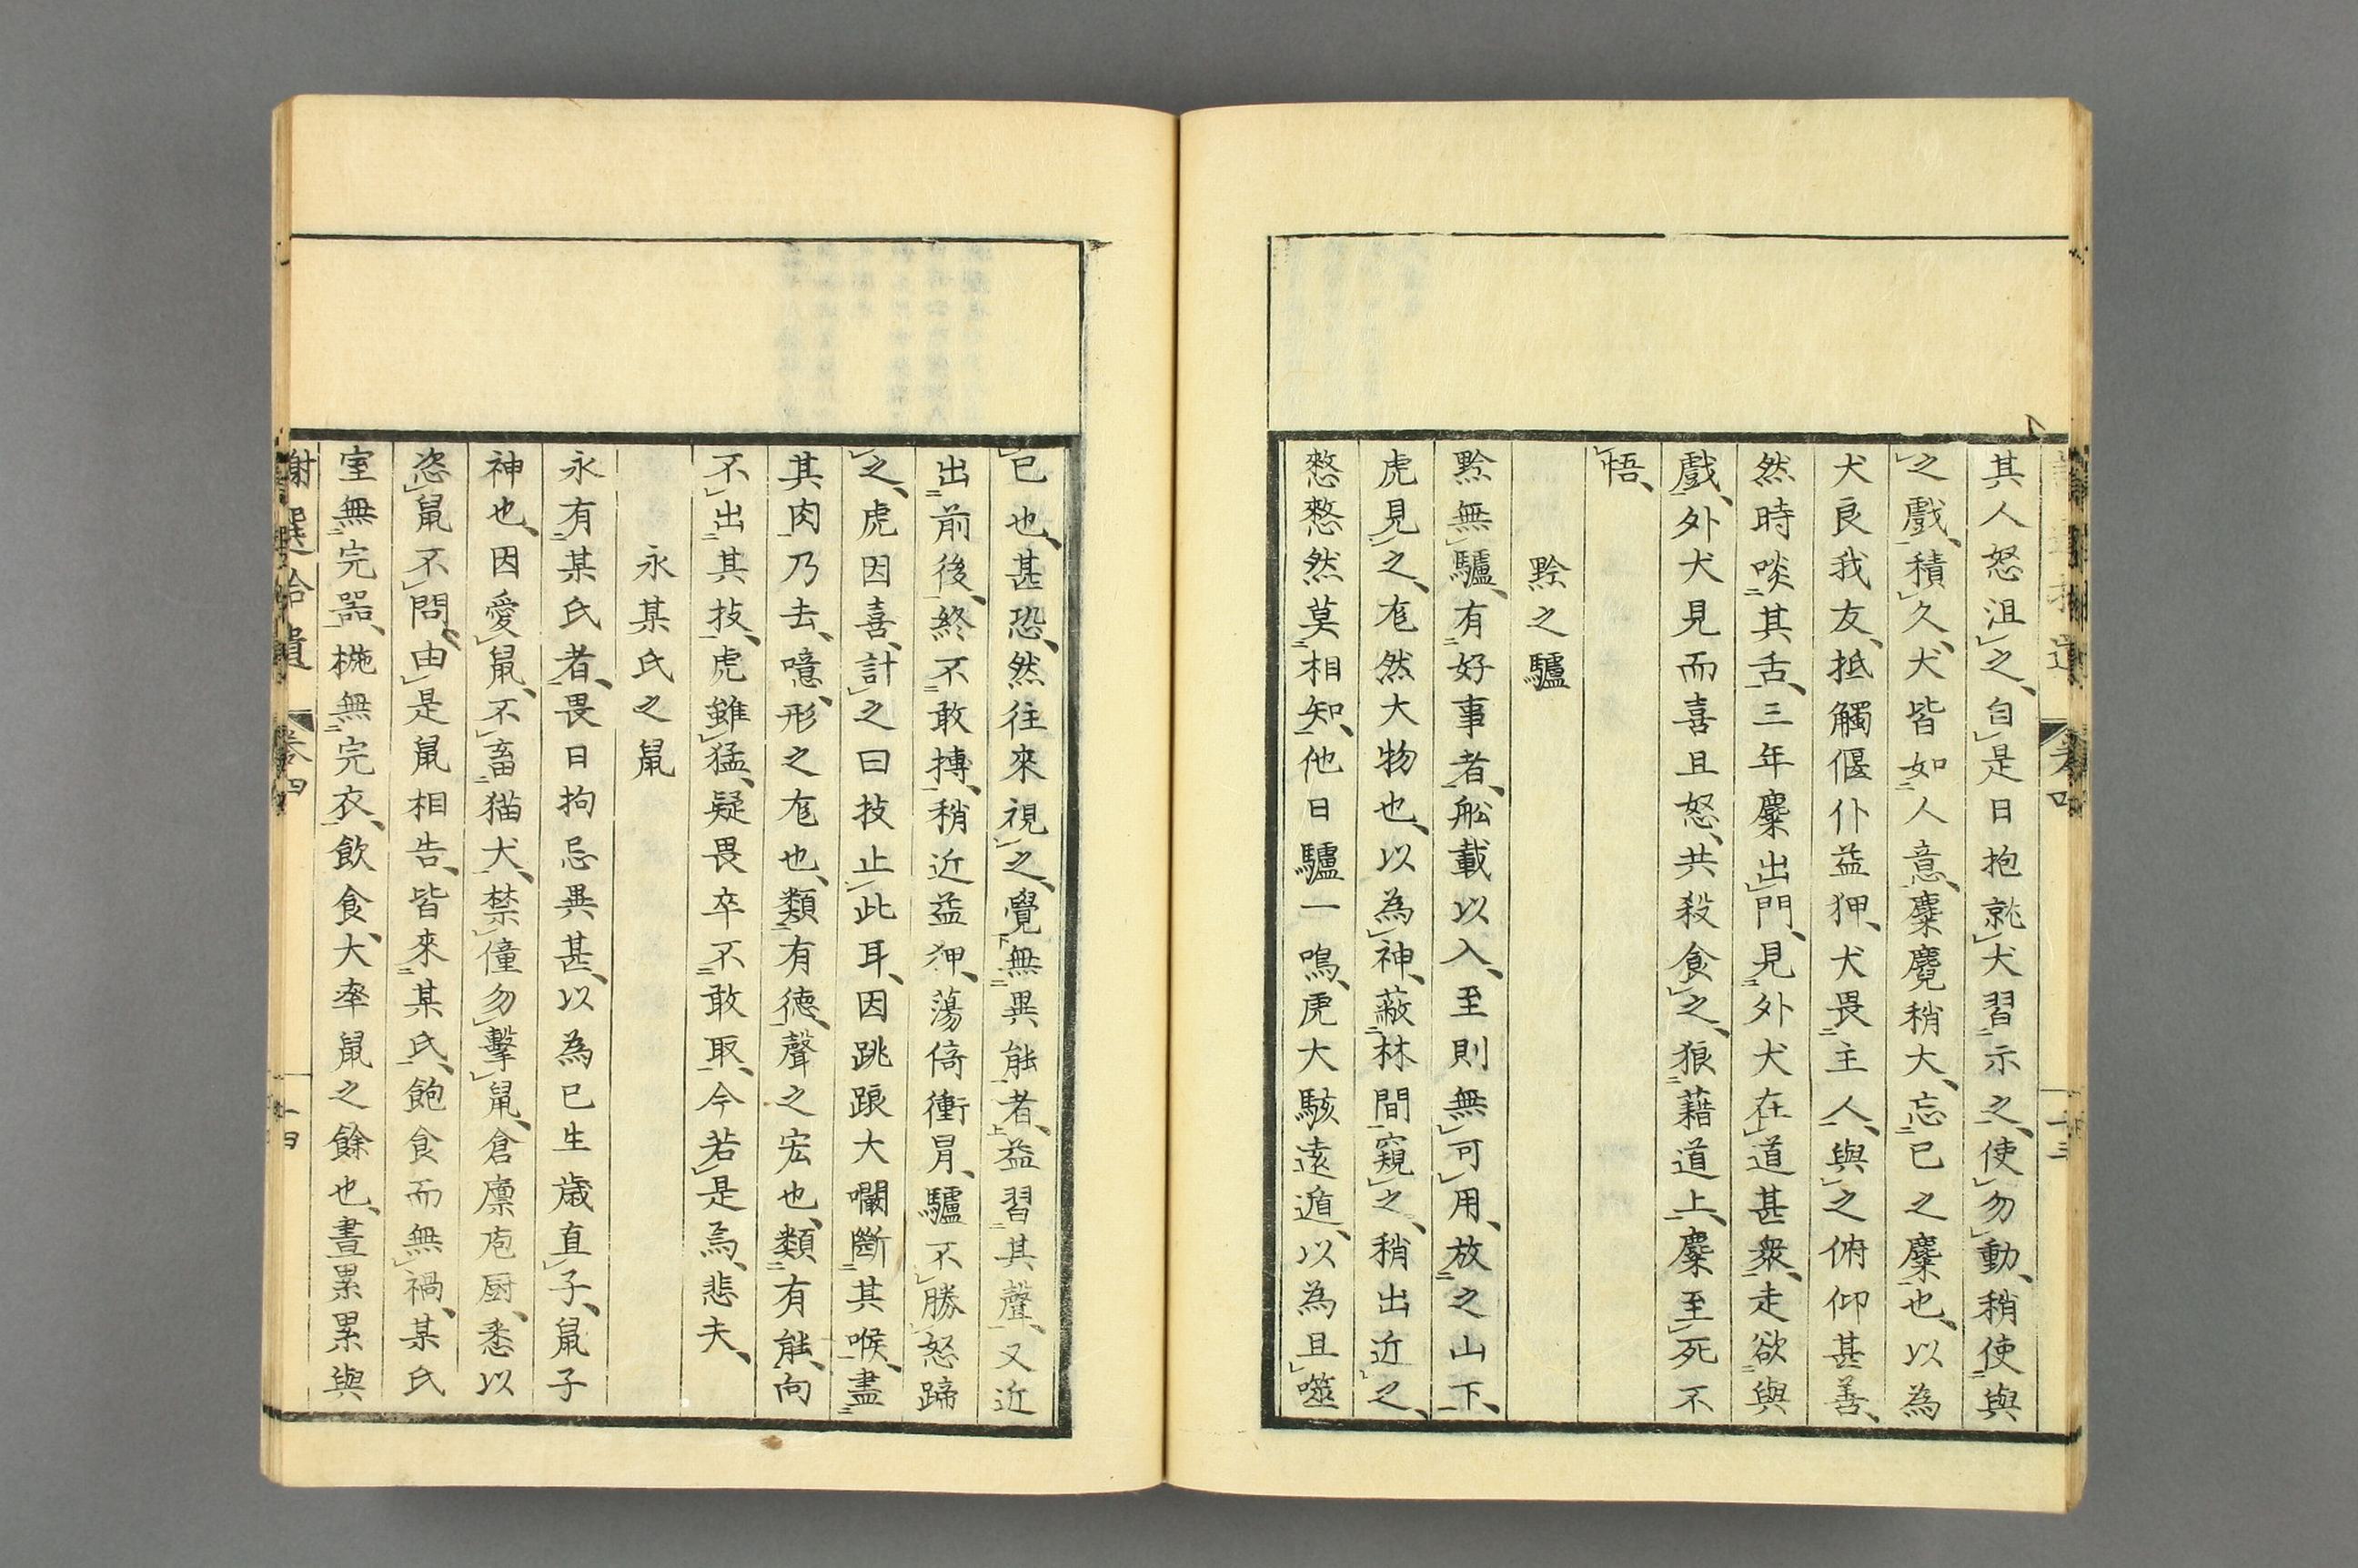 其人怒沮之、自是日抱就犬習示之、使勿動、稍使與
之戲、積久、犬皆如人意、麋麑稍大、忘已之麋也、以為
犬良我友、抵觸偃仆益狎、犬畏主人、與之俯仰甚善、
然時啖其舌、三年麋出門、見外犬在道甚衆、走欲與
戲、外犬見而喜且怒、共殺食之、狼藉道上、麋至死不
悟、
黔之驢
黔無驢、有好事者、舩載以入、至則無可用、放之山下、
虎見之、尨然大物也、以為神、蔽林間窺之、稍出近之、
憖憖然莫相知、他日驢一鳴、虎大駭遠遁、以為且噬
已也、甚恐、然往來視之、覺無異能者、益習其聲、又近
出前後、終不敢搏、稍近益狎、蕩倚衝冒、驢不勝怒蹄
之、虎因喜、計之曰技止此耳、因跳踉大㘚斷其喉、盡
其肉乃去、噫、形之尨也、類有德、聲之宏也、類有能、向
不出其技、虎雖猛、疑畏卒不敢取、今若是焉、悲夫、
永某氏之鼠
永有某氏者、畏日拘忌異甚、以為已生歲直子、鼠子
神也、因愛鼠、不畜猫犬、禁僮勿擊鼠、倉廩庖厨、悉以
恣鼠不問、由是鼠相告、皆來某氏、飽食而無禍、某氏
室無完器、椸無完衣、飲食、大率鼠之餘也、晝累累與
謝選拾遺 卷四 十四